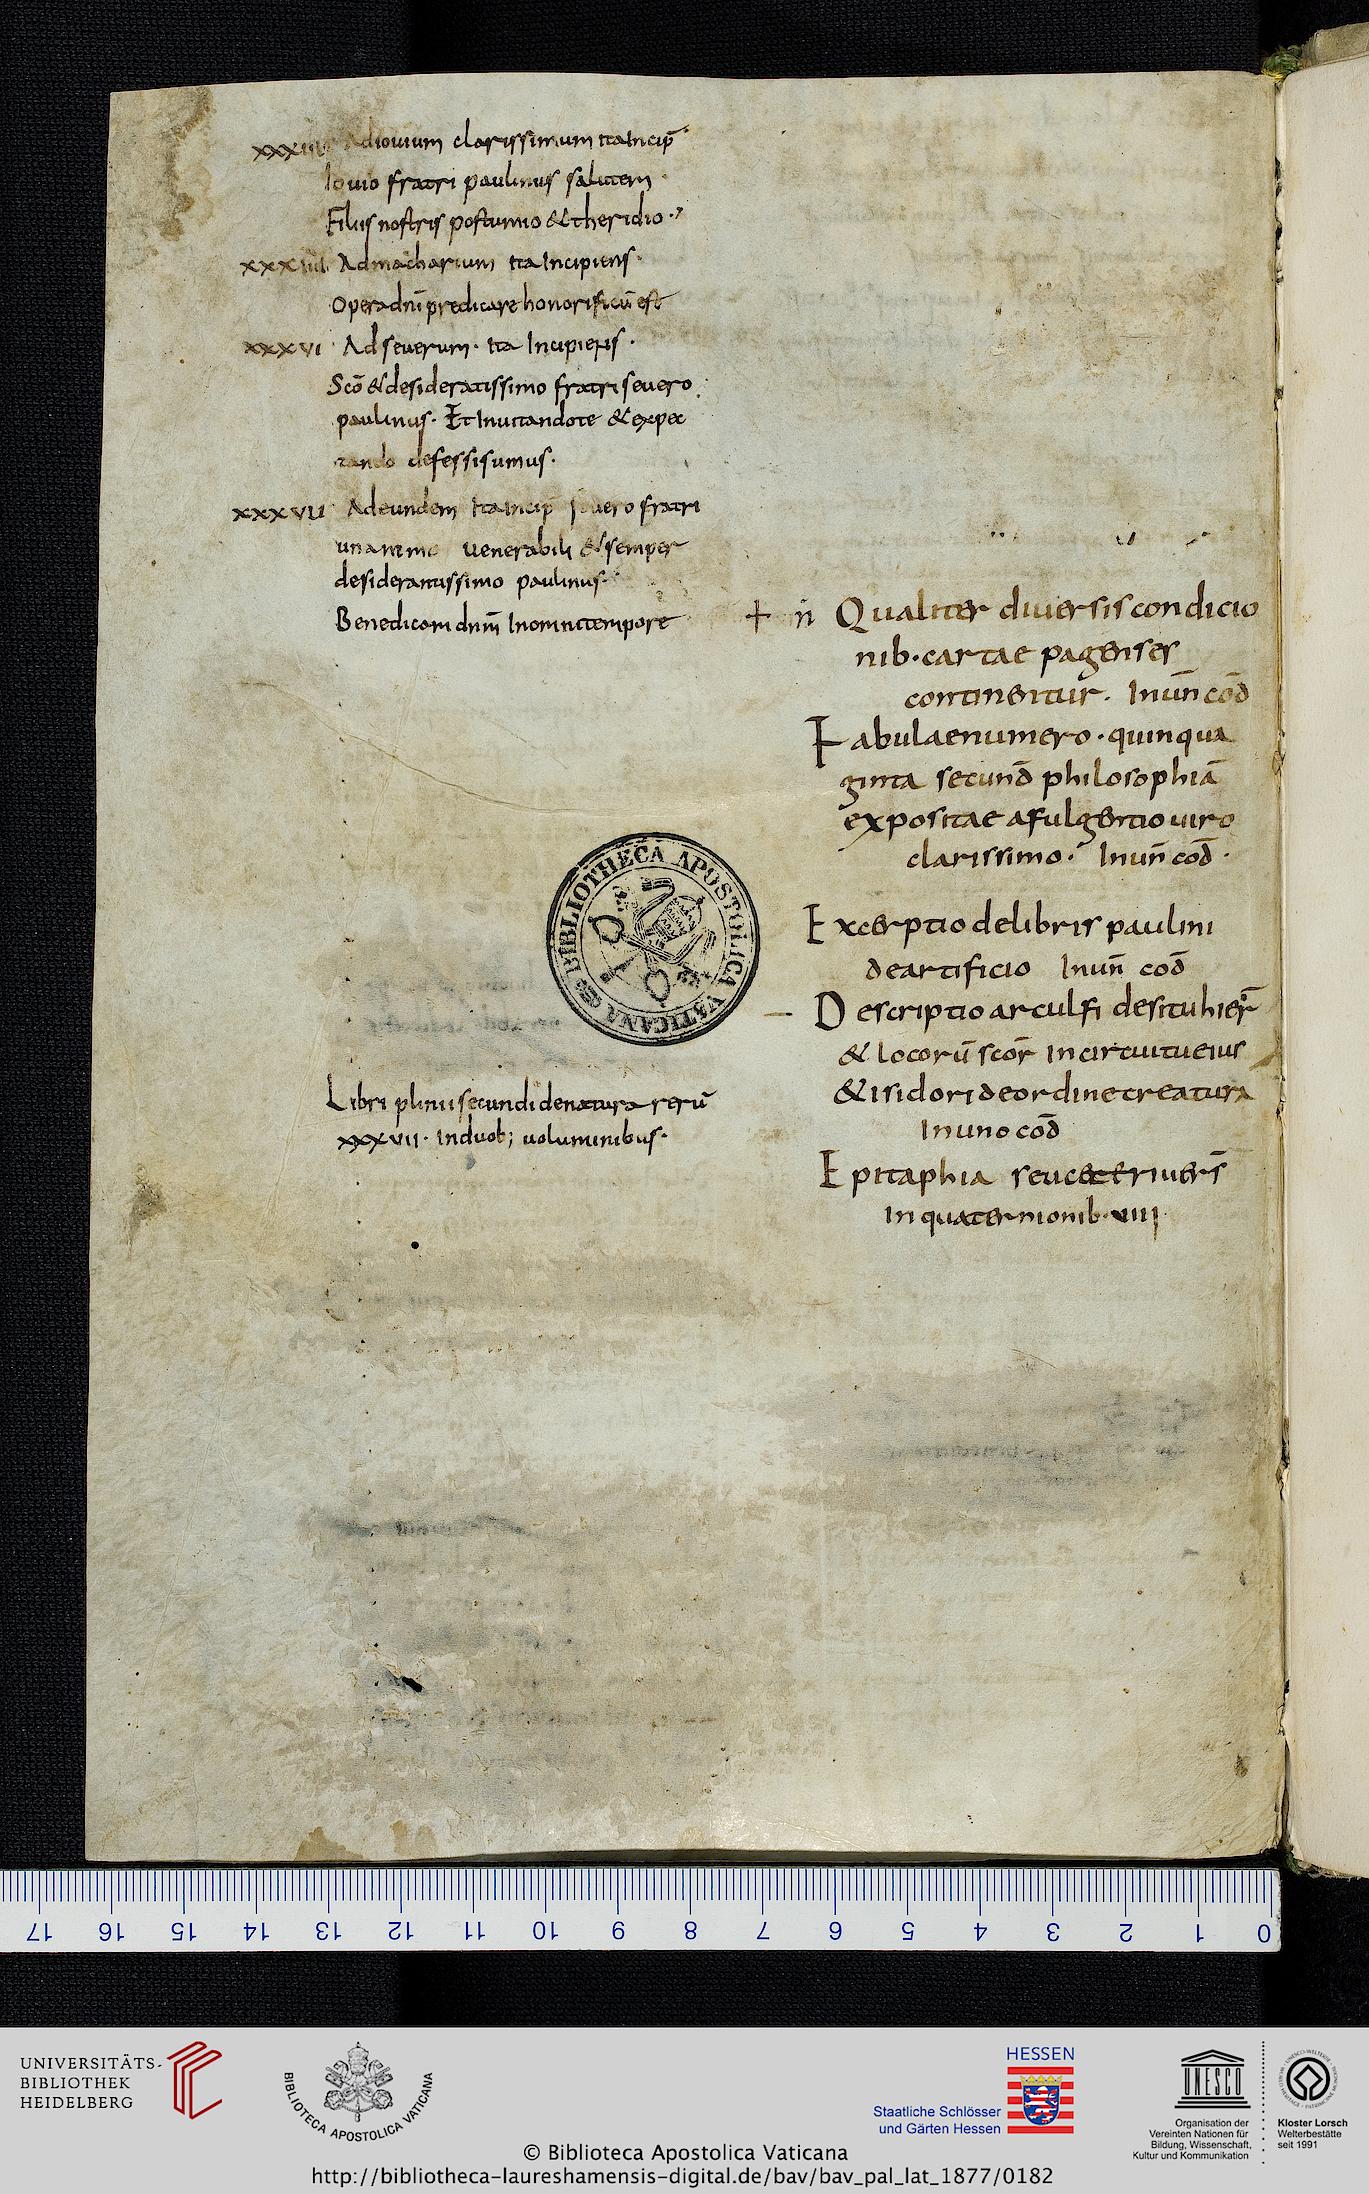 xxxiiii Adiouium clarissimum ita Incip̄
Iouio fratri paulinus salutem
Filiis nostris postumio & theridio
xxxiiii Admacharium ita Incipiens
Opera dn̄i predicare honorificū est
xxxvi Adseuerum· ita Incipiens·
Sc̄o & desideratissimo fratri seuero
paulinus· Et Inuitandote & expec
tando defessi sumus·
xxxvii Adeundem Ita incip̄ seuero fratri
unanimo uenerabili & semper
desiderantissimo paulinus·
Benedicam dnm̄ Inomni tempore
Libri plinii secundi denatura rerū
xxxvii· Induob; uoluminibus·
+ n̄ Qualiter diuersis condicio
nib·cartae pagenses
continentur· Inun̄ cod̄
Fabulae numero·quinqua
ginta secund̄ philosophiā
expositae afulgentio uiro
clarissimo· Inun̄ cod̄·
Excerptio delibris paulini
deartificio Inun̄ cod̄
Descriptio arculfi desitu hier̄
& locorū scōr̄ incircuitu eius
& isidori deordine creatura
In uno cod̄
Epitaphia seu ceteri uers̄
In quaternionib·viiii
BIBLIOTHECA APOSTOLICA VATICANA
17 16 15 14 13 12 11 10 9 8 7 6 5 4 3 2 1 0
UNIVERSITÄTS-
BIBLIOTHEK
HEIDELBERG
BIBLIOTECA APOSTOLICA VATICANA
HESSEN
Staatliche Schlösser
und Gärten Hessen
UNESCO
Organisation der
Vereinten Nationen für
Bildung, Wissenschaft,
Kultur und Kommunikation
Kloster Lorsch
Welterbestätte
seit 1991
© Biblioteca Apostolica Vaticana
http://bibliotheca-laureshamensis-digital.de/bav/bav_pal_lat_1877/0182